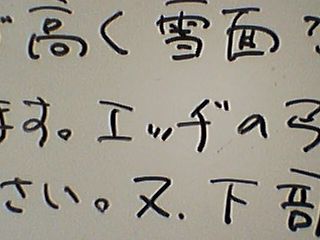 高く雪面
ます。エッヂの
さい。又.下部